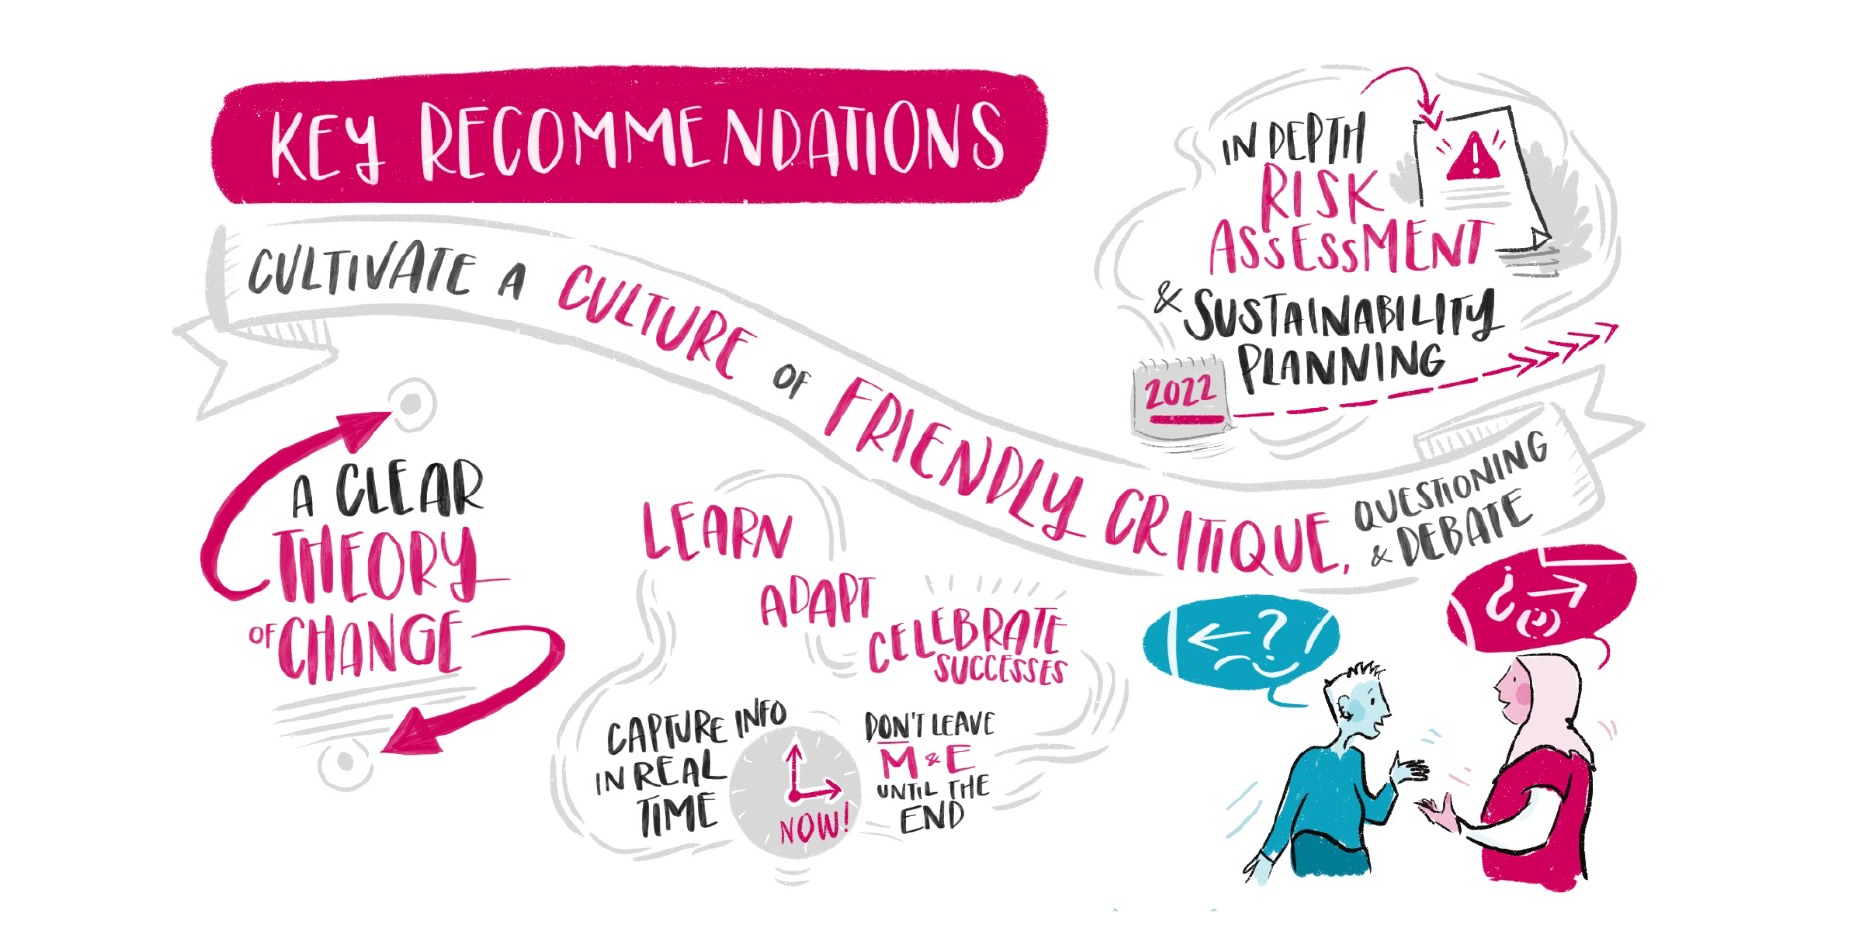 KEY RECOMMENDATIONS
CULTIVATE A CULTURE OF FRIENDLY CRITIQUE, QUESTIONING
& DEBATE
IN DEPTH
RISK
ASSESSMENT
& SUSTAINABILITY
PLANNING
2022
A CLEAR
THEORY
OF CHANGE
LEARN
ADAPT
CELEBRATE
SUCCESSES
CAPTURE INFO
IN REAL
TIME
NOW!
DON'T LEAVE
M & E
UNTIL THE
END
?
¿